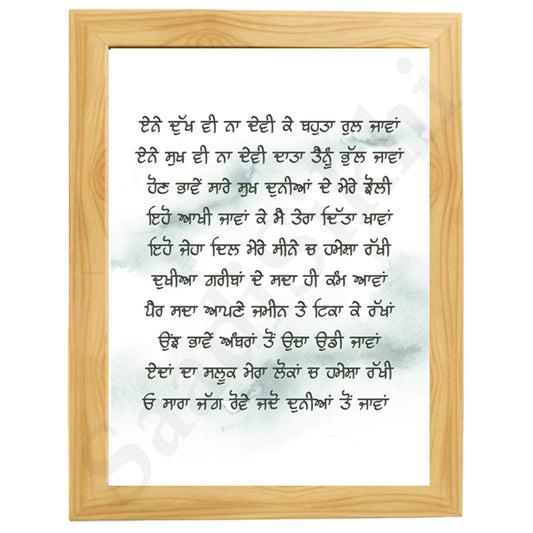 ਏਨੇ ਦੁੱਖ ਵੀ ਨਾ ਦੇਵੀ ਕੇ ਬਹੁਤਾ ਰੁਲ ਜਾਵਾਂ
ਏਨੇ ਸੁਖ ਵੀ ਨਾ ਦੇਵੀ ਦਾਤਾ ਤੈਨੂੰ ਭੁੱਲ ਜਾਵਾਂ
ਹੋਣ ਭਾਵੇਂ ਸਾਰੇ ਸੁਖ ਦੁਨੀਆਂ ਦੇ ਮੇਰੇ ਝੋਲੀ
ਇਹੋ ਆਖੀ ਜਾਵਾਂ ਕੇ ਮੈ ਤੇਰਾ ਦਿੱਤਾ ਖਾਵਾਂ
ਇਹੋ ਜੇਹਾ ਦਿਲ ਮੇਰੇ ਸੀਨੇ ਚ ਹਮੇਸ਼ਾ ਰੱਖੀ
ਦੁਖੀਆ ਗਰੀਬਾਂ ਦੇ ਸਦਾ ਹੀ ਕੰਮ ਆਵਾਂ
ਪੈਰ ਸਦਾ ਆਪਣੇ ਜਮੀਨ ਤੇ ਟਿਕਾ ਕੇ ਰੱਖਾਂ
ਉਂਝ ਭਾਵੇਂ ਅੰਬਰਾਂ ਤੋਂ ਉਚਾ ਉਡੀ ਜਾਵਾਂ
ਏਦਾਂ ਦਾ ਸਲੂਕ ਮੇਰਾ ਲੋਕਾਂ ਚ ਹਮੇਸ਼ਾ ਰੱਖੀ
ਓ ਸਾਰਾ ਜੱਗ ਰੋਵੇ ਜਦੋ ਦੁਨੀਆਂ ਤੋਂ ਜਾਵਾਂ
SaadiSikhi